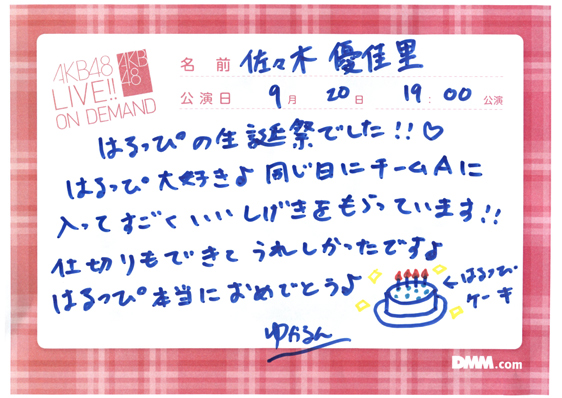 AKB48
LIVE!!
ON DEMAND
AKB
48
名 前 佐々木 優佳里
公演日 9月 20日 19:00 公演
はるっぴの生誕祭でした!!♡
はるっぴ大好き♪同じ日にチームAに
入ってすごくいいしげきをもらっています!!
仕切りもできてうれしかったです♪
はるっぴ本当におめでとう♪
←はるっぴ
ケーキ
ゆうるん
DMM.com